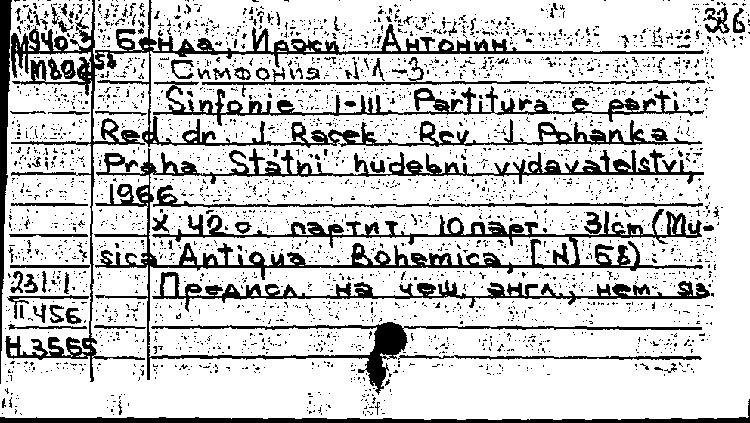 326
М940-3 Бенда, Иржи Антонин.
58 Симфония N 1-3
Sinfonie I-III. Partitura e parti
Red. dr. J. Racek. Rev. J. Pohanka.
Praha, Státni hudebni vydavatelstvi,
1966.
X, 42 с. партит., 10 парт. 31cm (Mu-
sica Antiqua Bohemica, [N] 58).
231.1. Предисл. на чеш., англ., нем. яз.
II 456
Н.3565